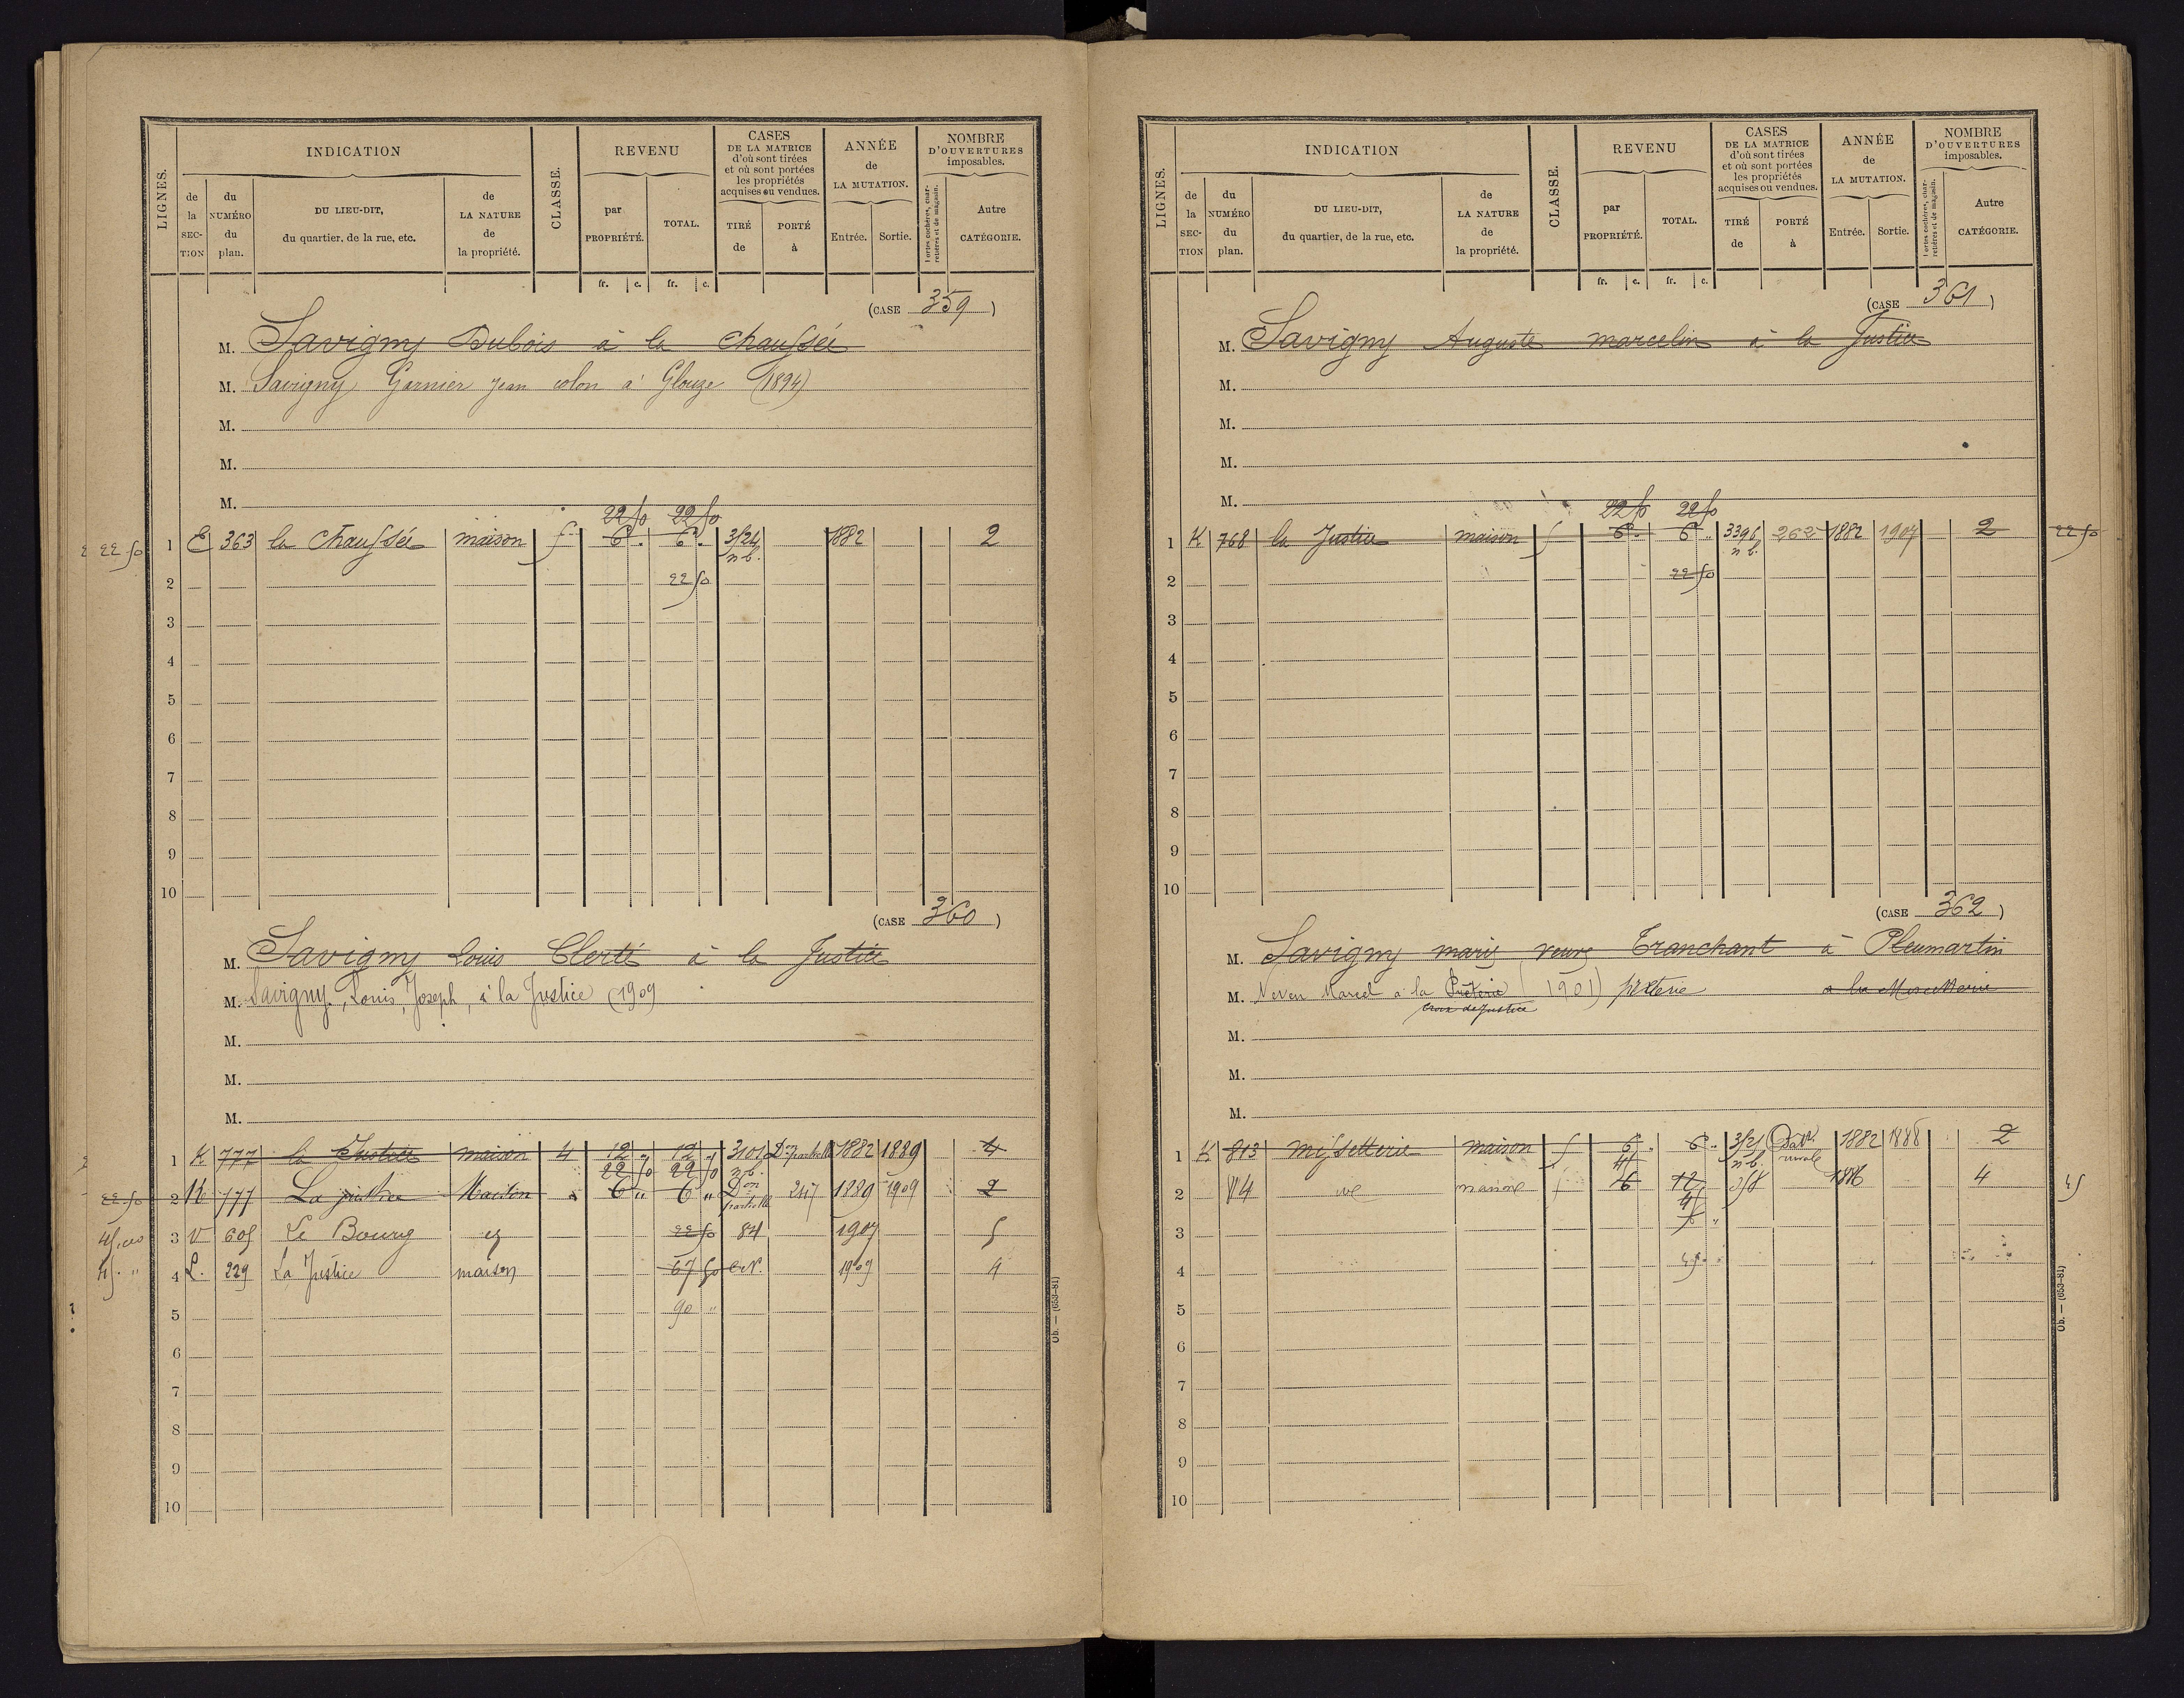 LIGNES.
INDICATION
de la SECTION
du NUMÉRO du plan.
DU LIEU-DIT, du quartier, de la rue, etc.
de LA NATURE de la propriété.
CLASSE.
REVENU
par PROPRIÉTÉ.
TOTAL.
CASES DE LA MATRICE d'où sont tirées et où sont portées les propriétés acquises ou vendues.
TIRÉ de
PORTÉ à
ANNÉE de LA MUTATION.
Entrée.
Sortie.
NOMBRE D'OUVERTURES imposables.
Portes cochères, charretières et de magasin.
Autre CATÉGORIE.
fr. c. fr. c.
(CASE 359)
M. Savigny Dubois à la chaussée
M. Savigny Garnier Jean colon à Glouze (1894)
M.
M.
M.
22 50 22 50
22 50 1 E 363 la chaussée maison 5 6 " 6 " 3124 1882 2
n b.
2 22 50
3
4
5
6
7
8
9
10
(CASE 360)
M. Savigny Louis Clerté à la Justice
M. Savigny, Louis, Joseph, à la Justice (1909
M.
M.
M.
1 K 777 la Justice maison 4 12 " 12 " 3101 Don partielle 1882 1889 4
22 50 22 50 n b.
22.50 2 K 777 La justice Maison 6 " 6 " Don partielle 247 1889 1909 2
45,00 3 V 605 Le Bourg 22 50 84 1907 5
45. " 4 L. 229 La Justice maison 67 50 C.N. 1909 4
5 90 "
6
7
8
9
10
Ob. — (653-81)
LIGNES.
INDICATION
de la SECTION
du NUMÉRO du plan.
DU LIEU-DIT, du quartier, de la rue, etc.
de LA NATURE de la propriété.
CLASSE.
REVENU
par PROPRIÉTÉ.
TOTAL.
CASES DE LA MATRICE d'où sont tirées et où sont portées les propriétés acquises ou vendues.
TIRÉ de
PORTÉ à
ANNÉE de LA MUTATION.
Entrée.
Sortie.
NOMBRE D'OUVERTURES imposables.
Portes cochères, charretières et de magasin.
Autre CATÉGORIE.
fr. c. fr. c.
(CASE 361)
M. Savigny Auguste marcelin à la Justice
M.
M.
M.
M.
22 50 22 50
1 K 768 la Justice maison 5 6 " 6 " 3396 262 1882 1907 2 22 50
n b.
2 22 50
3
4
5
6
7
8
9
10
(CASE 362)
M. Savigny marie veuve Tranchant à Pleumartin
M. Neven Marcel à la (1901)
croix de Justice
M.
M.
M.
1 K 813 missetterie maison 5 6 " 6 " 3121 Bat. rurale 1882 1888 2
45 n b.
2 814 maison 5 6 12 358 1886 4 45
45
3
4 45
5
6
7
8
9
10
Ob. — (653-81)